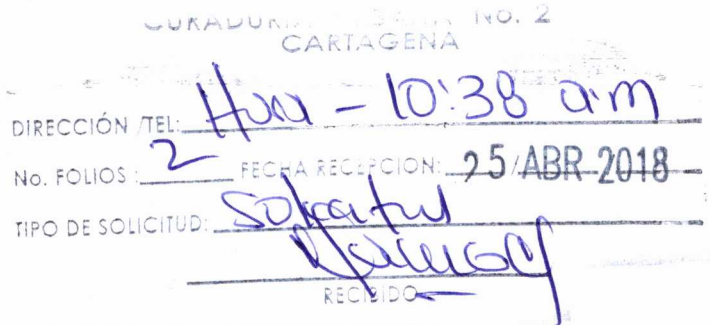 CURADURIA URBANA No. 2
CARTAGENA
DIRECCIÓN /TEL: Hora - 10:38 a.m
No. FOLIOS: 2 FECHA RECEPCION: 25/ABR 2018
TIPO DE SOLICITUD: Solicitud
RECIBIDO